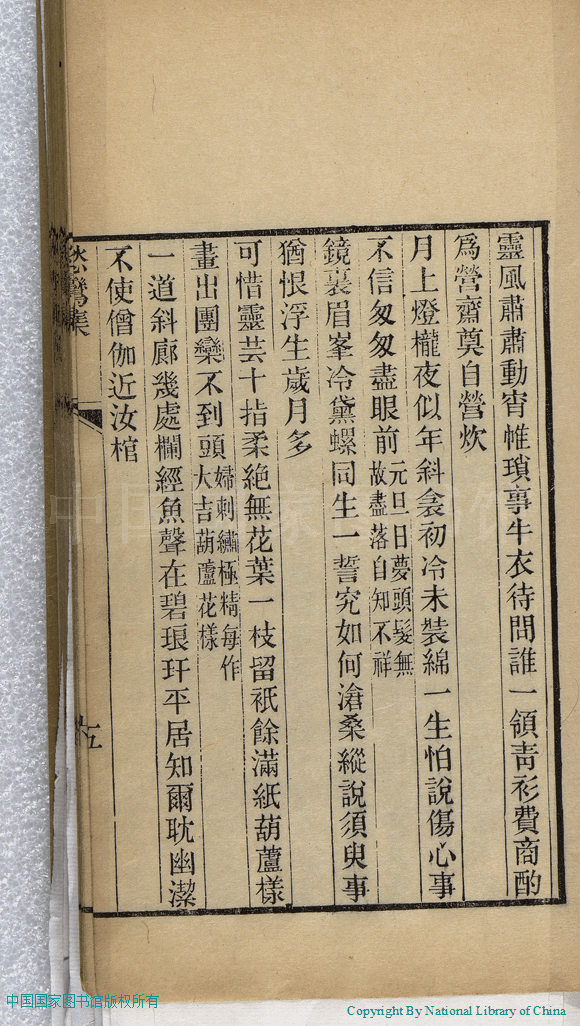 靈風肅肅動宵帷瑣事牛衣待問誰一領青衫費商酌
爲營齋奠自營炊
月上燈櫳夜似年斜衾初冷未裝綿一生怕說傷心事
不信匆匆盡眼前元旦日夢頭髮無
故盡落自知不祥
鏡裏眉峯冷黛螺同生一誓究如何滄桑縱說須臾事
猶恨浮生歲月多
可惜靈芸十指柔絶無花葉一枝留衹餘滿紙葫蘆樣
畫出團欒不到頭婦刺繡極精每作
大吉葫蘆花樣
一道斜廊幾處欄經魚聲在碧琅玕平居知爾耽幽潔
不使僧伽近汝棺
愁鸞集
十五
中国国家图书馆版权所有
Copyright By National Library of China